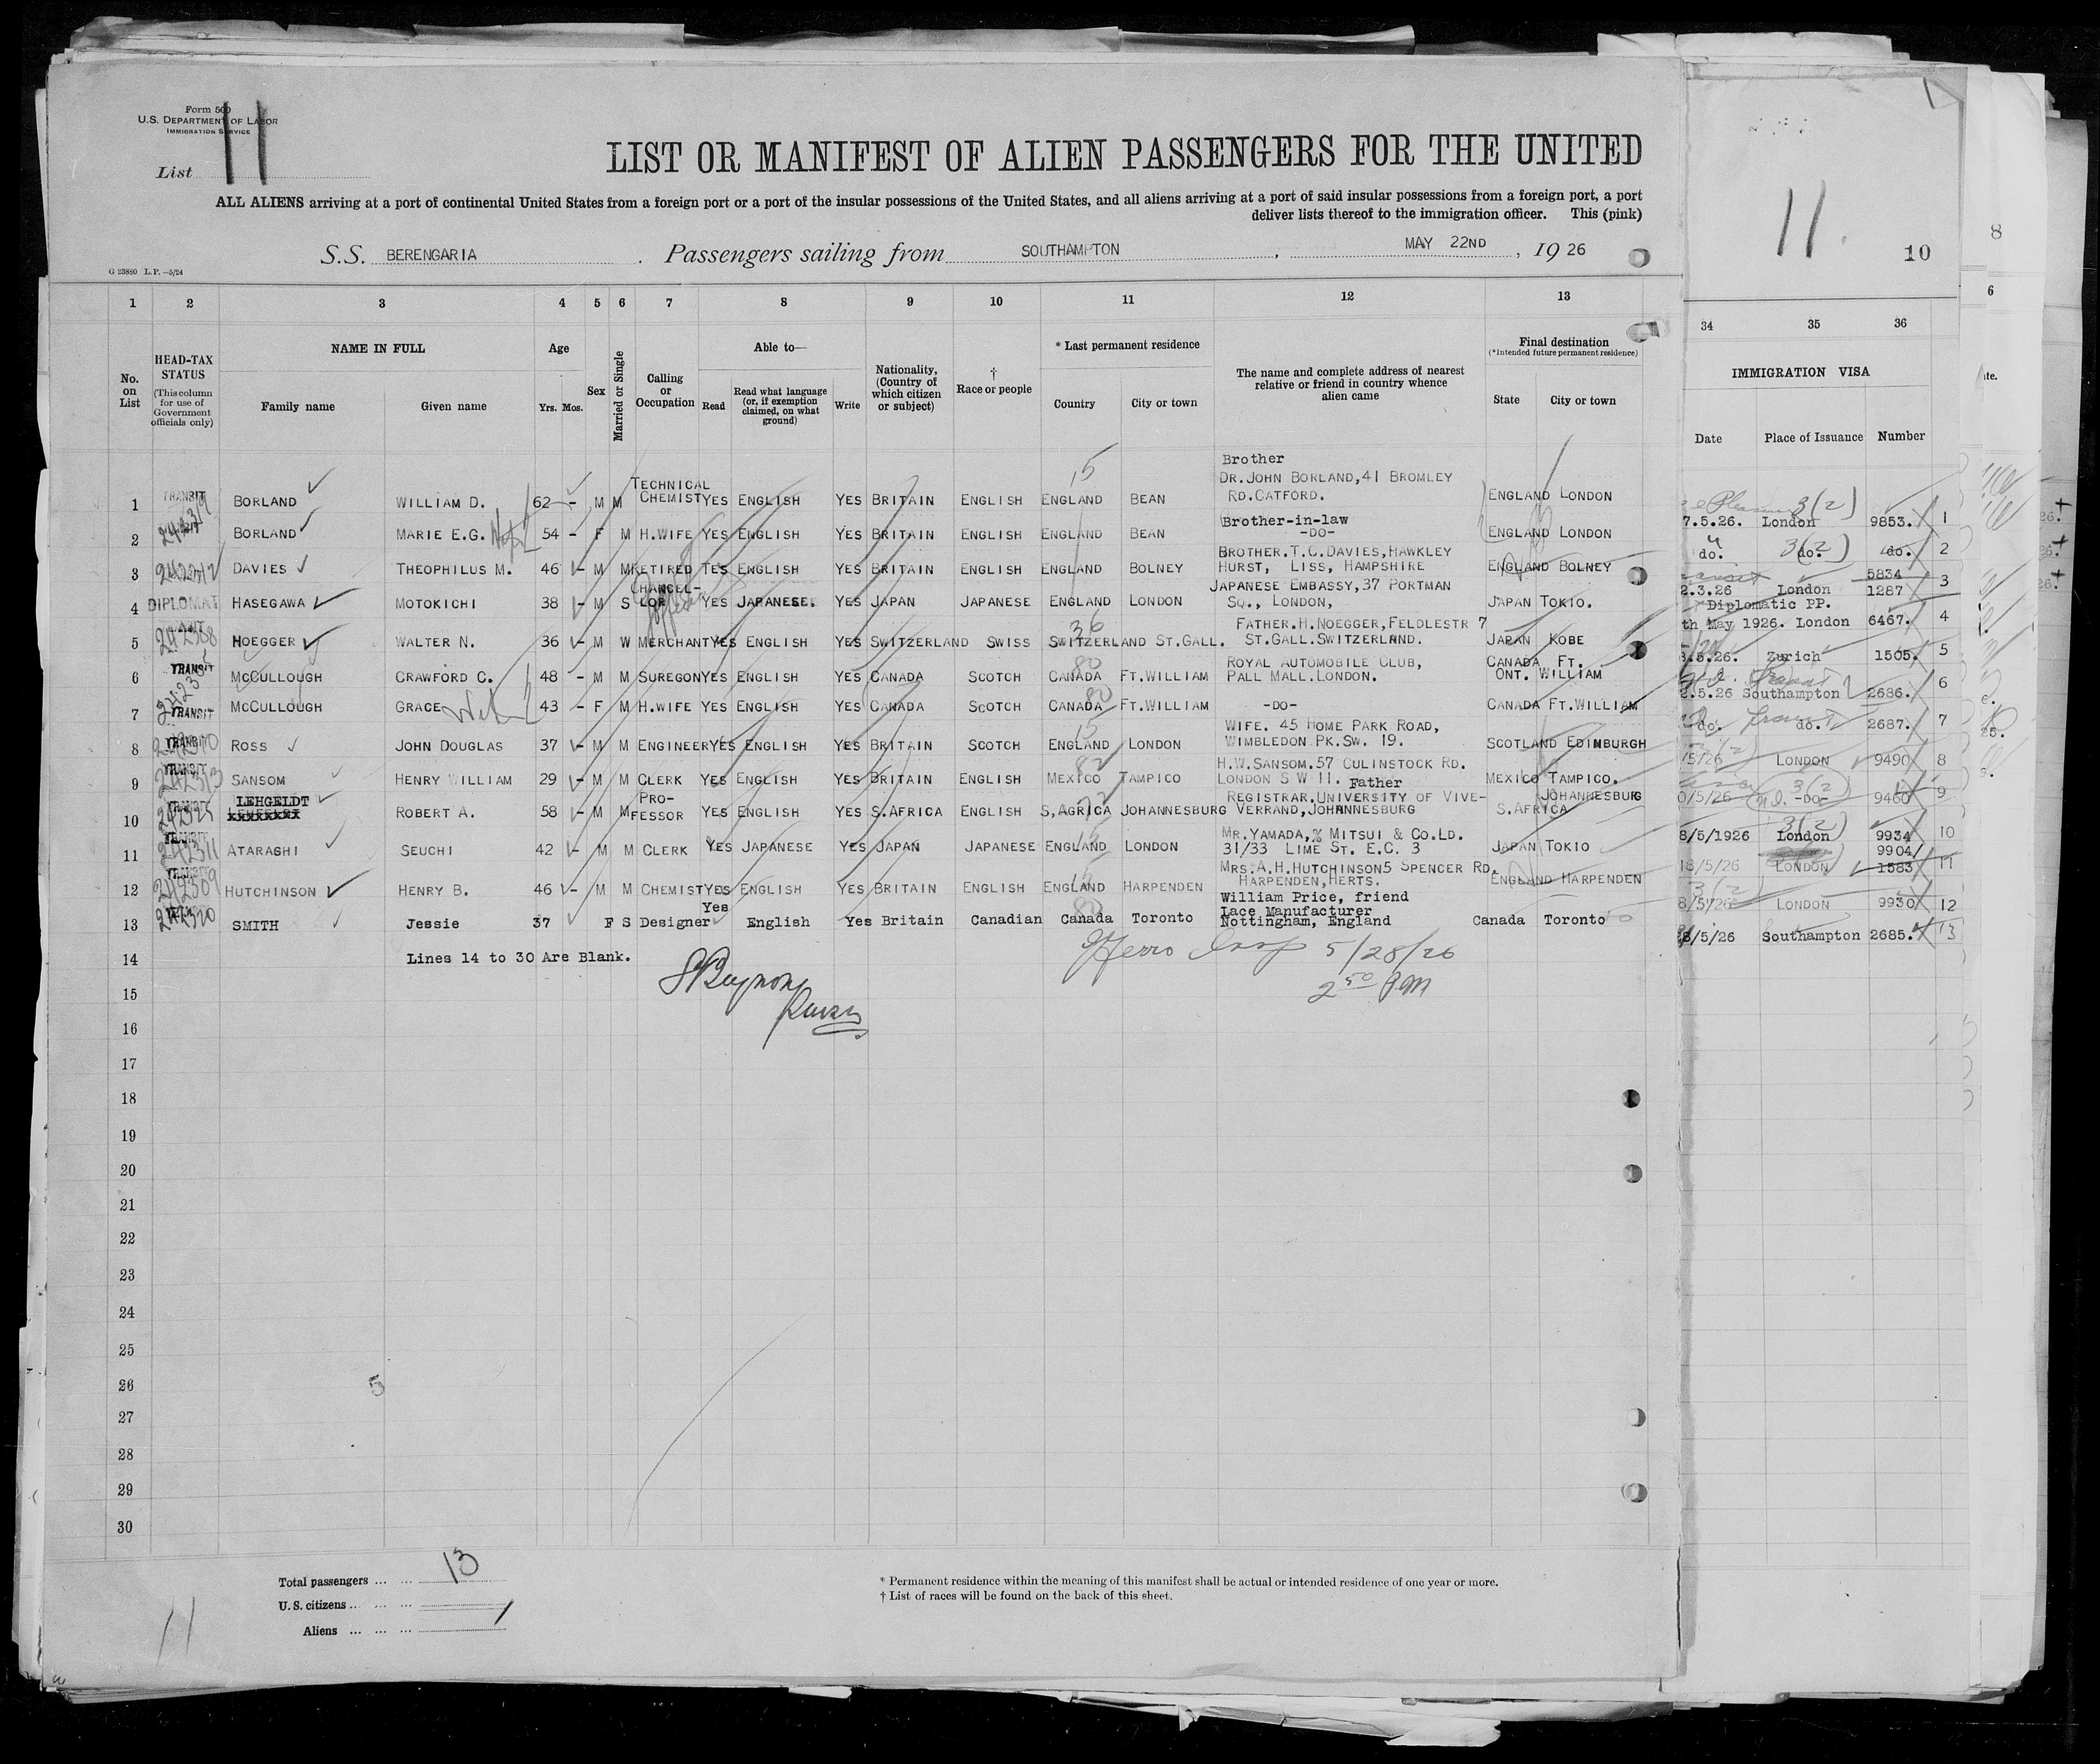 Form 500
U.S. DEPARTMENT OF LABOR
IMMIGRATION SERVICE
List 11
LIST OR MANIFEST OF ALIEN PASSENGERS FOR THE UNITED
ALL ALIENS arriving at a port of continental United States from a foreign port or a port of the insular possessions of the United States, and all aliens arriving at a port of said insular possessions from a foreign port, a port
deliver lists thereof to the immigration officer. This (pink)
S.S. BERENGARIA. Passengers sailing from SOUTHAMPTON, MAY 22ND, 1926
G 23880 L.P.—5/24
11. 10
8
6
1 2 3 4 5 6 7 8 9 10 11 12 13 34 35 36
No. on List
HEAD-TAX STATUS
(This column for use of Government officials only)
NAME IN FULL
Family name Given name
Age
Yrs. Mos.
Sex
Married or Single
Calling or Occupation
Able to—
Read
Read what language (or, if exemption claimed, on what ground)
Write
Nationality, (Country of which citizen or subject)
† Race or people
* Last permanent residence
Country City or town
The name and complete address of nearest relative or friend in country whence alien came
Final destination
(*Intended future permanent residence)
State City or town
IMMIGRATION VISA
Date Place of Issuance Number
1 TRANSIT BORLAND WILLIAM D. 62 - M M TECHNICAL CHEMIST YES ENGLISH YES BRITAIN ENGLISH ENGLAND BEAN Brother DR. JOHN BORLAND, 41 BROMLEY RD. CATFORD. ENGLAND LONDON 7.5.26. London 3(2) 9853. 1
2 BORLAND MARIE E.G. 54 - F M H.WIFE YES ENGLISH YES BRITAIN ENGLISH ENGLAND BEAN Brother-in-law -DO- ENGLAND LONDON do. 3(2) do. do. 2
3 DAVIES THEOPHILUS M. 46 - M M RETIRED TES ENGLISH YES BRITAIN ENGLISH ENGLAND BOLNEY BROTHER. T.C. DAVIES, HAWKLEY HURST, LISS, HAMPSHIRE ENGLAND BOLNEY 2.3.26 London 5834 1287 3
4 DIPLOMAT HASEGAWA MOTOKICHI 38 - M S CHANCEL-LOR YES JAPANESE. YES JAPAN JAPANESE ENGLAND LONDON JAPANESE EMBASSY, 37 PORTMAN SQ., LONDON, JAPAN TOKIO. Diplomatic PP. th May 1926. London 6467. 4
5 HOEGGER WALTER N. 36 - M W MERCHANT YES ENGLISH YES SWITZERLAND SWISS SWITZERLAND ST.GALL. FATHER. H. NOEGGER, FELDLESTR 7 ST.GALL. SWITZERLAND. JAPAN KOBE 5.26. Zurich 1505. 5
6 TRANSIT MCCULLOUGH CRAWFORD C. 48 - M M SUREGON YES ENGLISH YES CANADA SCOTCH CANADA FT.WILLIAM ROYAL AUTOMOBILE CLUB, PALL MALL. LONDON. CANADA FT. ONT. WILLIAM .5.26 Southampton 2686. 6
7 TRANSIT MCCULLOUGH GRACE 43 - F M H.WIFE YES ENGLISH YES CANADA SCOTCH CANADA FT.WILLIAM -DO- CANADA FT.WILLIAM do. do. 2687. 7
8 TRANSIT ROSS JOHN DOUGLAS 37 - M M ENGINEER YES ENGLISH YES BRITAIN SCOTCH ENGLAND LONDON WIFE. 45 HOME PARK ROAD, WIMBLEDON PK. SW. 19. SCOTLAND EDINBURGH /5/26 LONDON 9490 8
9 TRANSIT SANSOM HENRY WILLIAM 29 - M M CLERK YES ENGLISH YES BRITAIN ENGLISH MEXICO TAMPICO H.W. SANSOM. 57 CULINSTOCK RD. LONDON S W 11. Father MEXICO TAMPICO. 0/5/26 -DO- 3(2) 9460 9
10 TRANSIT LEHGELDT ROBERT A. 58 - M M PRO-FESSOR YES ENGLISH YES S.AFRICA ENGLISH S,AGRICA JOHANNESBURG REGISTRAR. UNIVERSITY OF VIVE-VERRAND, JOHANNESBURG S.AFRICA JOHANNESBURG 8/5/1926 London 3(2) 9934 10
11 TRANSIT ATARASHI SEUCHI 42 - M M CLERK YES JAPANESE YES JAPAN JAPANESE ENGLAND LONDON MR. YAMADA, % MITSUI & CO. LD. 31/33 LIME ST. E.C. 3 JAPAN TOKIO 18/5/26 LONDON 9904 1583 11
12 HUTCHINSON HENRY B. 46 - M M CHEMIST YES ENGLISH YES BRITAIN ENGLISH ENGLAND HARPENDEN MRS. A.H. HUTCHINSON 5 SPENCER RD. HARPENDEN, HERTS. ENGLAND HARPENDEN 8/5/26 3(2) LONDON 9930 12
13 SMITH Jessie 37 F S Designer Yes English Yes Britain Canadian Canada Toronto William Price, friend Lace Manufacturer Nottingham, England Canada Toronto 8/5/26 Southampton 2685. 13
14 Lines 14 to 30 Are Blank.
5/28/26
2 50 PM
15
16
17
18
19
20
21
22
23
24
25
26 5
27
28
29
30
Total passengers ... ... 13
U.S. citizens ... ... ...
Aliens ... ... ...
11
* Permanent residence within the meaning of this manifest shall be actual or intended residence of one year or more.
† List of races will be found on the back of this sheet.